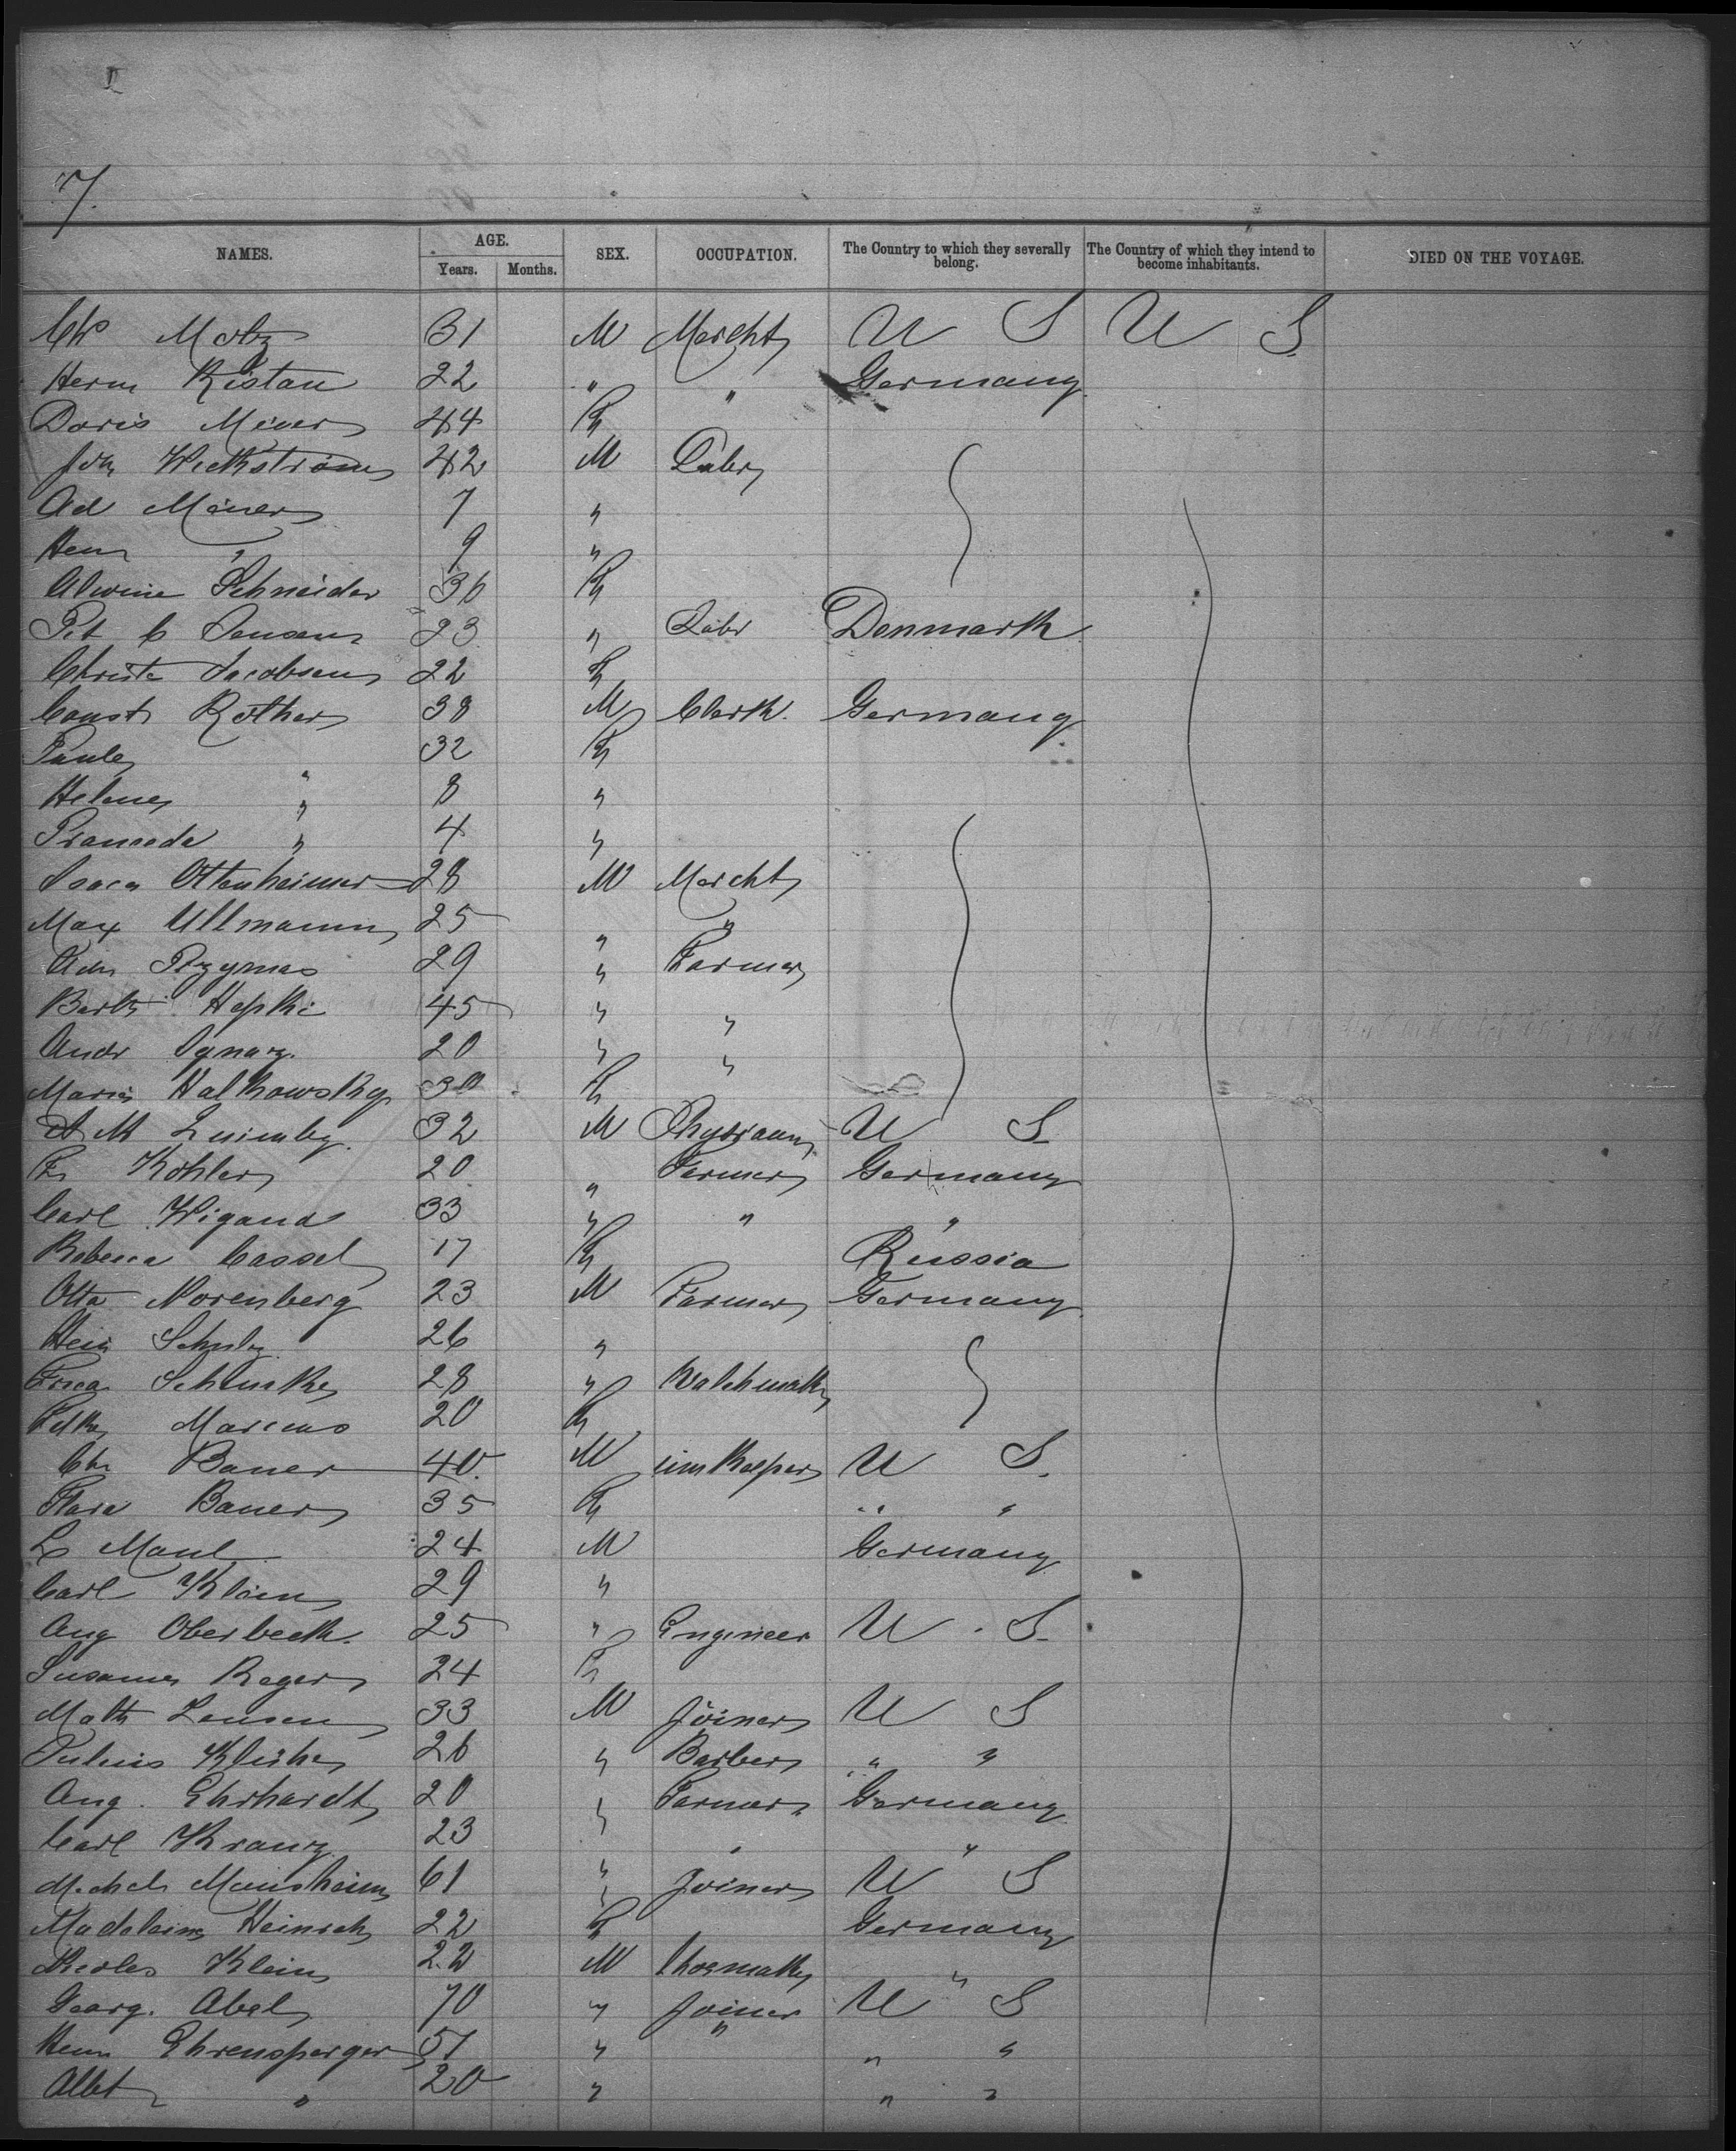 7.
NAMES. AGE. Years. Months. SEX. OCCUPATION. The Country to which they severally belong. The Country of which they intend to become inhabitants. DIED ON THE VOYAGE.
Chs Motz 31 M Mercht U S U S
Herm Ristau 22 " " Germany
Doris Meier 44 F
Joh Wickstrom 42 M Labr
Ad Meier 7 "
Henr " 9 "
Alwine Schneider 36 F
Pet C Jensen 23 " Labr Denmark
Christe Jacobsen 22 F
Const Rother 38 M Clerk. Germany
Paule 32 F
Helene " 8 "
" 4 "
Isaca Ottenheimer 28 M Mercht
Max Ullmann 25 " "
Adm 29 " Farmer
Barth Hepke 45 " "
Andr Ignaz. 20 " "
Maria Halkowsky 30 F
32 M Physician U S
Fr Kohler 20 " Farmer Germany
Carl Wigand 33 " " "
Rebecca Cassel 17 F Russia
Otto Norenberg 23 M Farmer Germany
Hein Schulz 26 "
28 " Watchmak
Marcus 20 F
Chr Bauer 40. M innkeeper U S.
Flara Bauer 35 F " "
L Maul 24 M Germany
Carl Klein 29 "
Aug Oberbeck. 25 " Engineer U. S.
Susanna Roger 24 F
Math Jensen 33 M Joiner U S
Julius 26 " Barber " "
Aug. Ehrhardt 20 " Farmer Germany
Carl Kranz 23 " " "
Michel 61 " Joiner U S
Madelaine Heinrich 22 F Germany
Nicolas Klein 22 M shoemak "
Georg. Abel 70 " Joiner U S
Henr Ehrensperger 51 " " " "
Albt " 20 " " "